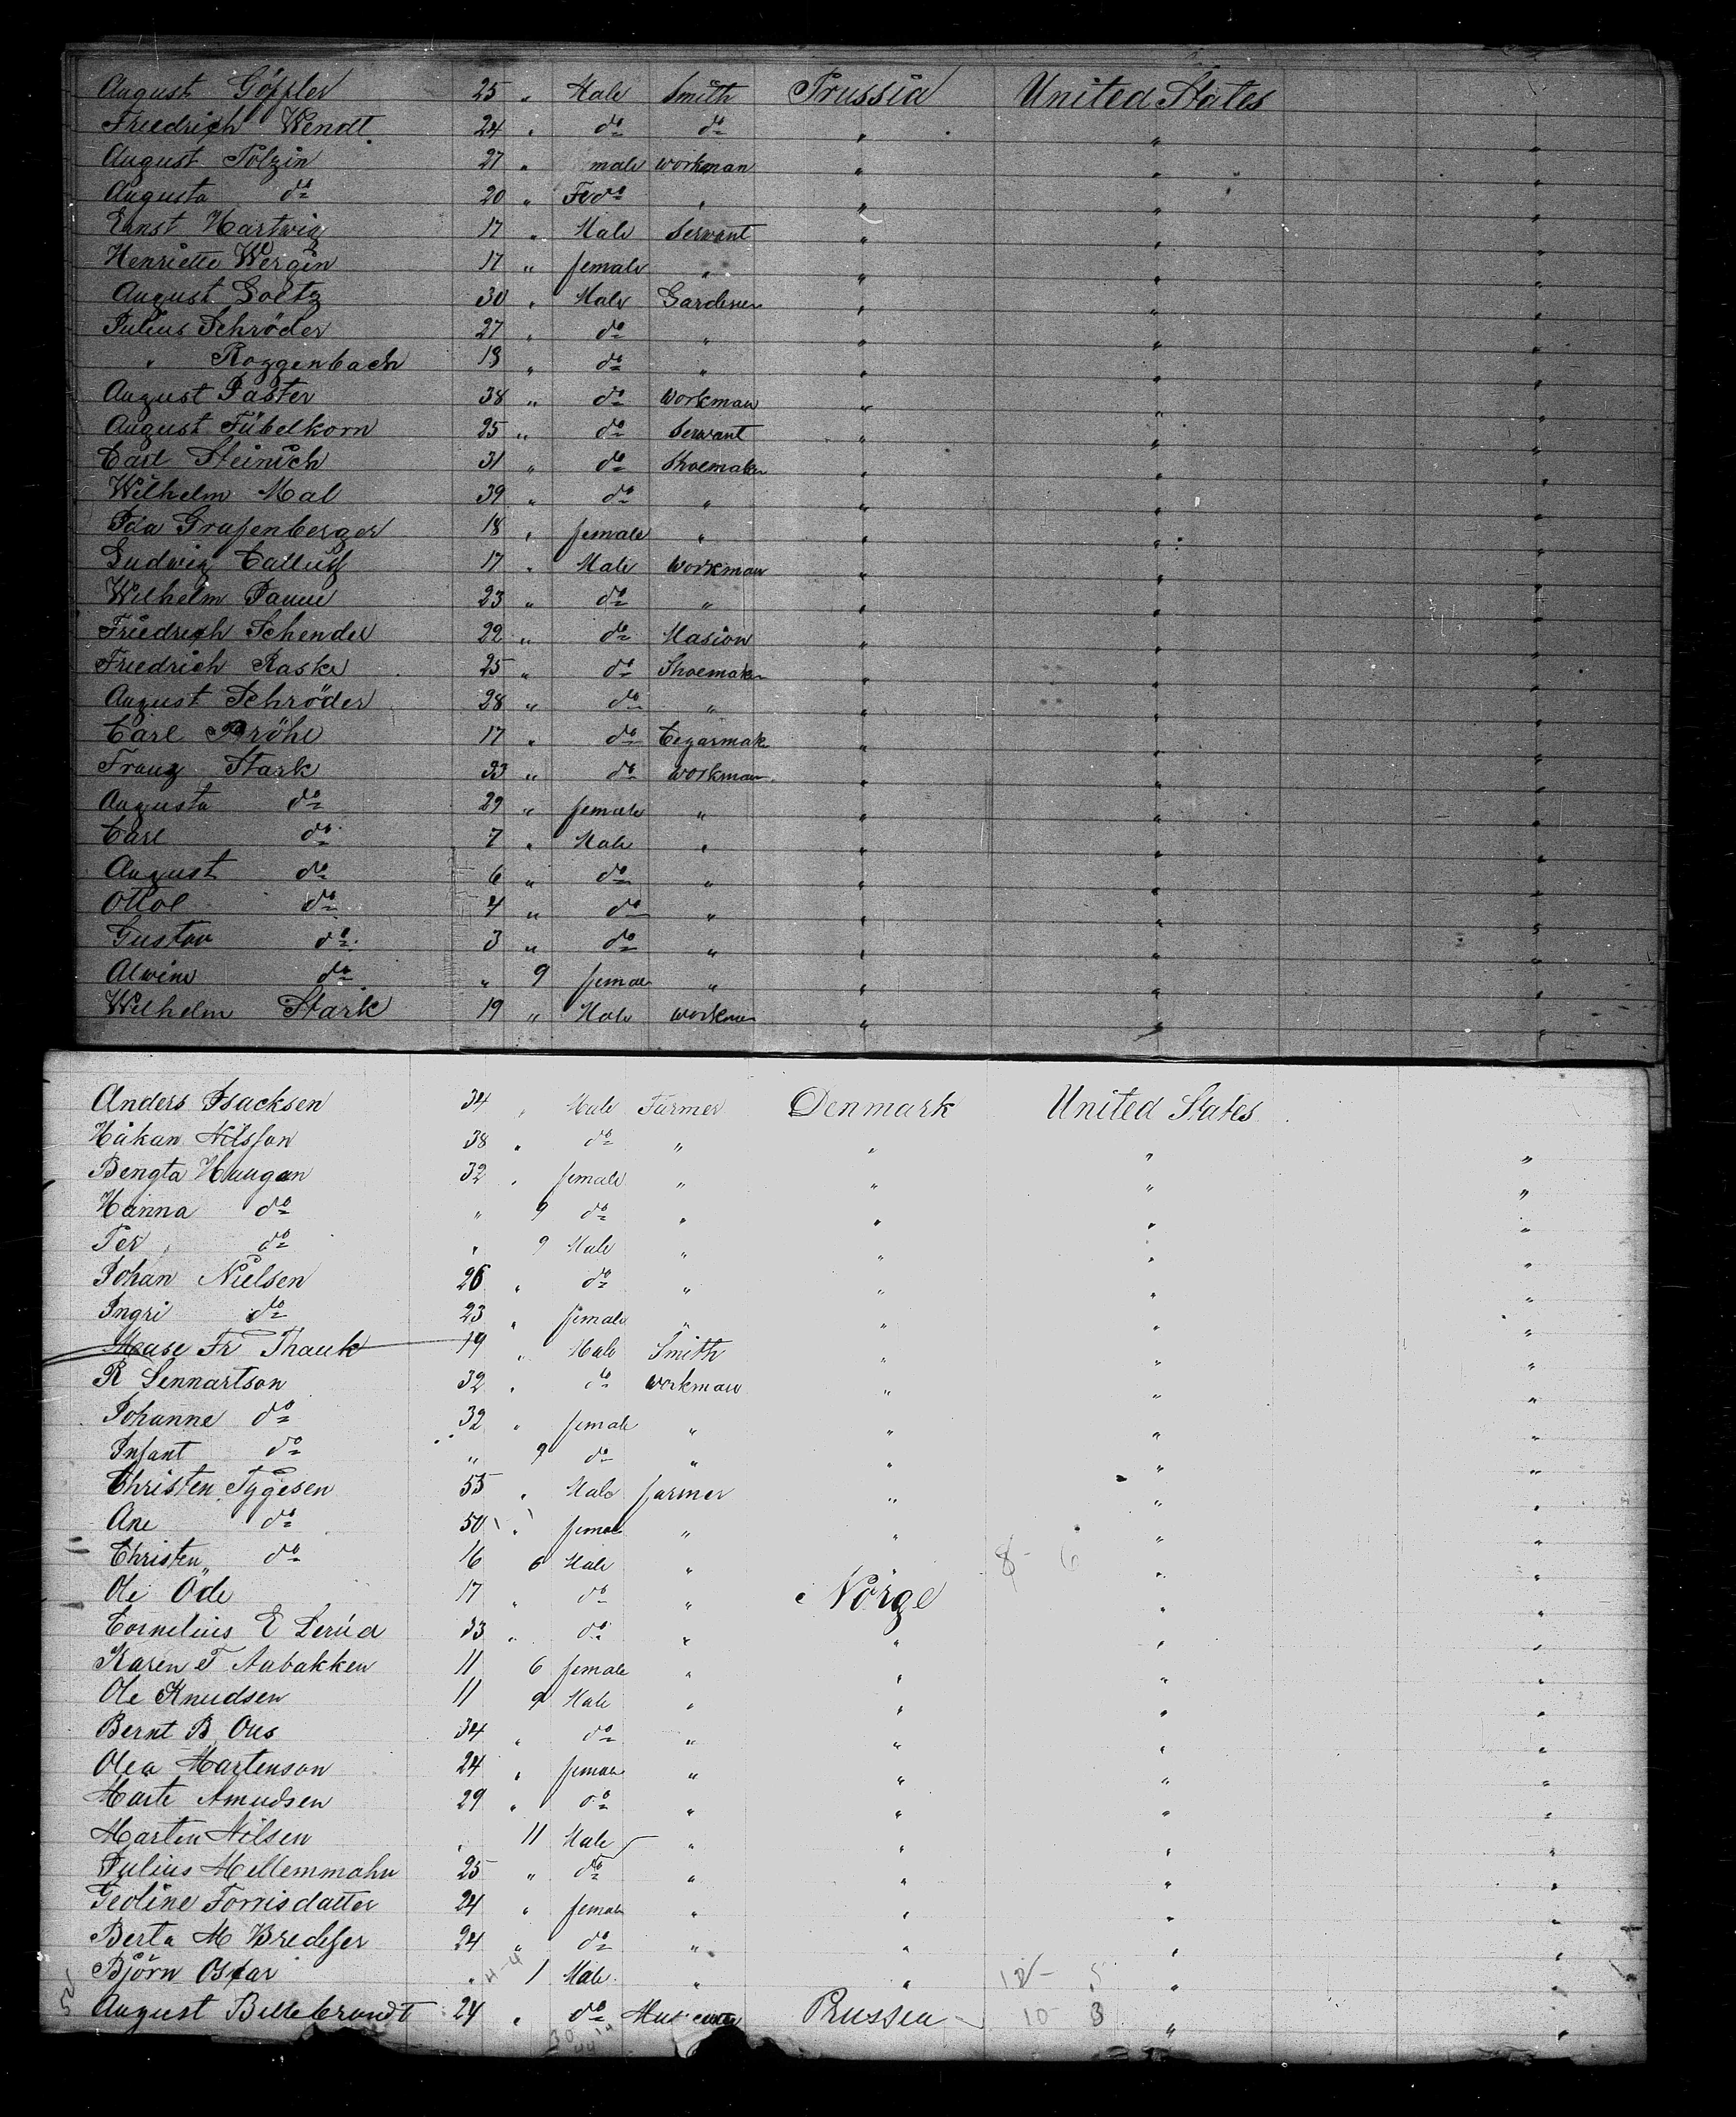 August Göffler 25 " Male Smith Prussia United States
Friedrich Wendt 24 " do do " " "
August Polzin 27 " male workman " " "
Augusta do 20 " Fe do " " " "
Ernst Hartwig 17 " Male Servant " " "
Henriette Wergin 17 " female " " " "
August Goltz 30 " Male Gardener " " "
Julius Schröder 27 " do " " " "
" Roggenbach 18 " do " " " "
August Paster 38 " do Workman " " "
August Fübelkorn 25 " do Servant " " "
Carl Steinich 31 " do Shoemaker " " "
Wilhelm Mal 39 " do " " " "
Ida Grafenberger 18 " female " " " "
Ludwig 17 " Male Workman " " "
Wilhelm 23 " do " " " "
Friedrich Schendel 22 " do Masion " " "
Friedrich Raske 25 " do Shoemaker " " "
August Schröder 28 " do " " " "
Carl Pröhl 17 " do Cegarmak " " "
Franz Stark 33 " do workman " " "
Augusta do 29 " female " " " "
Carl do 7 " Male " " " "
August do 6 " do " " " "
Ottol do 4 " do " " " "
Gustav do 3 " do " " " "
Alwine do " 9 female " " " "
Wilhelm Stark 19 " Male workman " " "
Anders Isacksen 34 " Male Farmer Denmark United States
Håkan Nilsson 38 " do " " " "
Bengta Haugan 32 " female " " " "
Hanna do " 9 do " " " "
Per do " 9 Male " " " "
Johan Nielsen 26 " do " " " "
Ingri do 23 " female " " " "
Mase Fr Thauk 19 " Male Smith " " "
R Lennartson 32 " do workman " " "
Johanne do 32 " female " " " "
Infant do " 9 do " " " "
Christen Tygesen 55 " Male farmer " " "
Ane do 50 " female " " " "
Christen do 16 6 Male " " 8 - 6 " "
Ole Öde 17 " do " Norge " "
Cornelius E Lerud 33 " do " " " "
Karen T Aabakken 11 6 female " " " "
Ole Knudsen 11 9 Male " " " "
Bernt B. Ous 34 " do " " " "
Olea Martenson 24 " female " " " "
Marte Amudsen 29 " do " " " "
Marten Nilsen " 11 Male " " " "
Julius Mellemmohn 25 " do " " " "
Geoline Torrisdatter 24 " female " " " "
Berta M Bredeser 24 " do " " " "
Björn Oscar " 1 Male " " 12 - 5 " "
August Billebrandt 24 " do Russia 10 3 " "